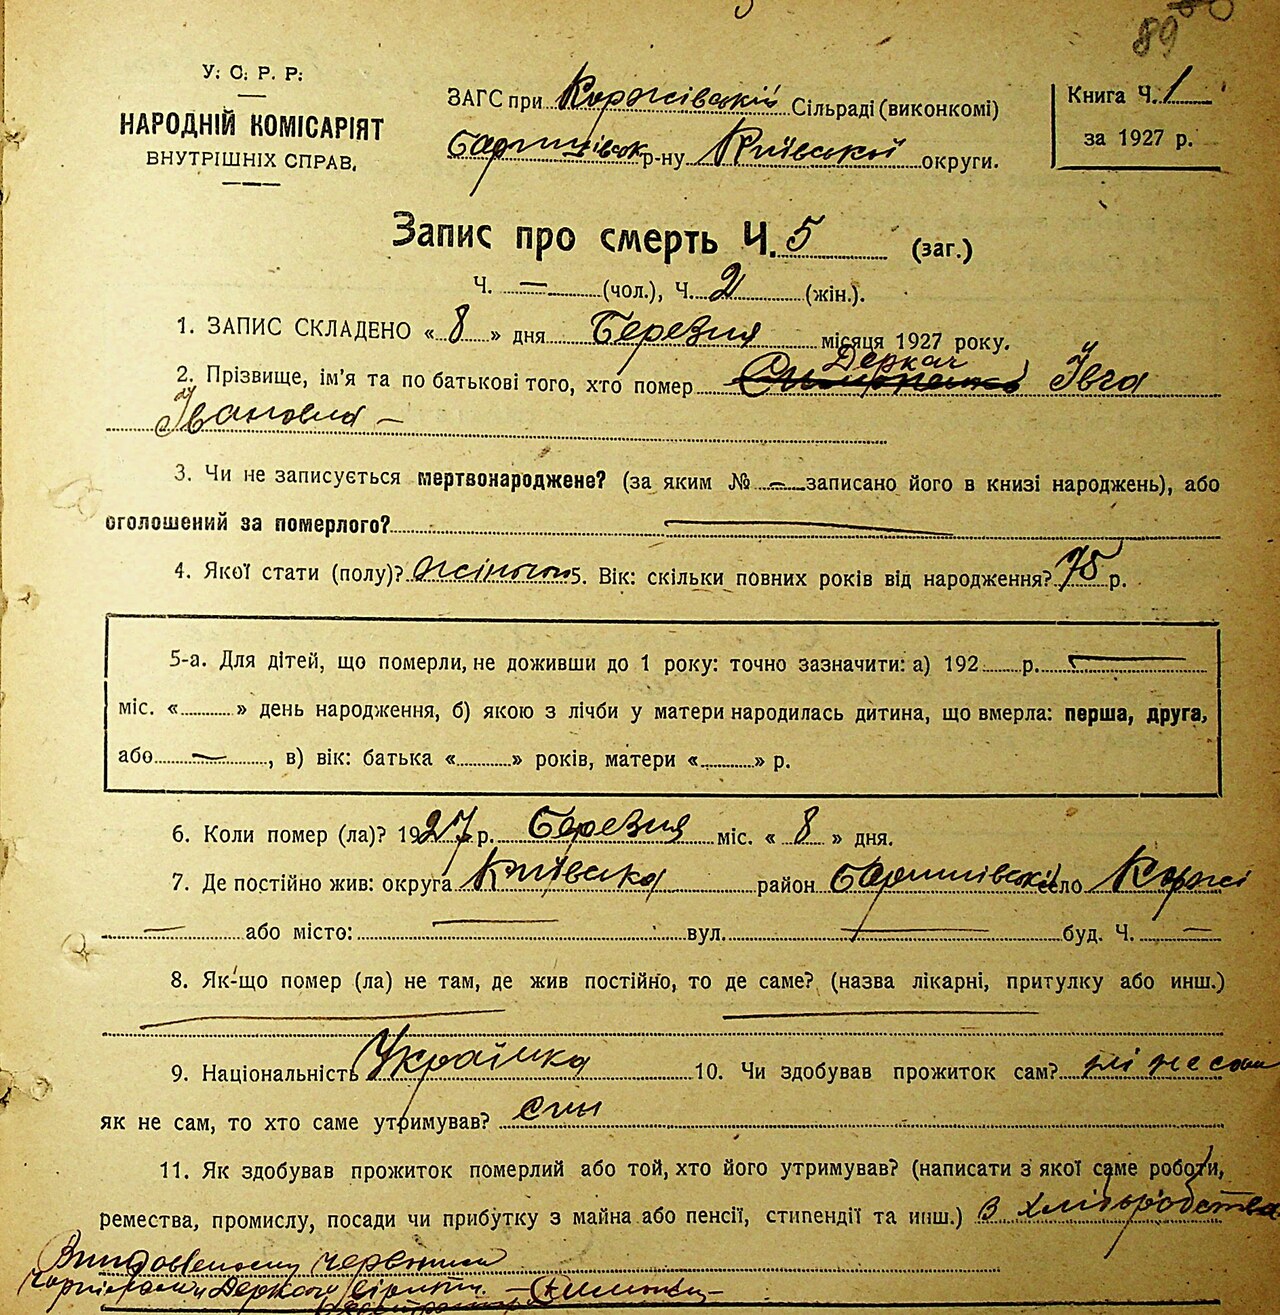 89
У. С. Р. Р.
НАРОДНІЙ КОМІСАРІЯТ
ВНУТРІШНІХ СПРАВ.
ЗАГС при Коржівській Сільраді (виконкомі)
Баришівськ р-ну Київської округи.
Книга Ч. 1
за 1927 р.
Запис про смерть Ч. 5 (заг.)
Ч. — (чол.), Ч. 2 (жін.).
1. ЗАПИС СКЛАДЕНО « 8 » дня Березня місяця 1927 року.
Деркач
2. Прізвище, ім'я та по батькові того, хто помер Ївга
Івановна —
3. Чи не записується мертвонароджене? (за яким № — записано його в книзі народжень), або
оголошений за померлого? —
4. Якої стати (полу)? жіночої 5. Вік: скільки повних років від народження? 75 р.
5-а. Для дітей, що померли, не доживши до 1 року: точно зазначити: а) 192 р. —
міс. « » день народження, б) якою з лічби у матери народилась дитина, що вмерла: перша, друга,
або — , в) вік: батька « » років, матери « » р.
6. Коли помер (ла)? 1927 р. Березня міс. « 8 » дня.
7. Де постійно жив: округа Київська район Баришівськ село Коржі
— або місто: — вул. — буд. Ч. —
8. Як-що помер (ла) не там, де жив постійно, то де саме? (назва лікарні, притулку або инш.)
— —
9. Національність Українка 10. Чи здобував прожиток сам? ні не сам
як не сам, то хто саме утримував? син
11. Як здобував прожиток померлий або той, хто його утримував? (написати з якої саме роботи,
ремества, промислу, посади чи прибутку з майна або пенсії, стипендії та инш.) З хліборобства
червоним
чорнілами Деркач вірити.